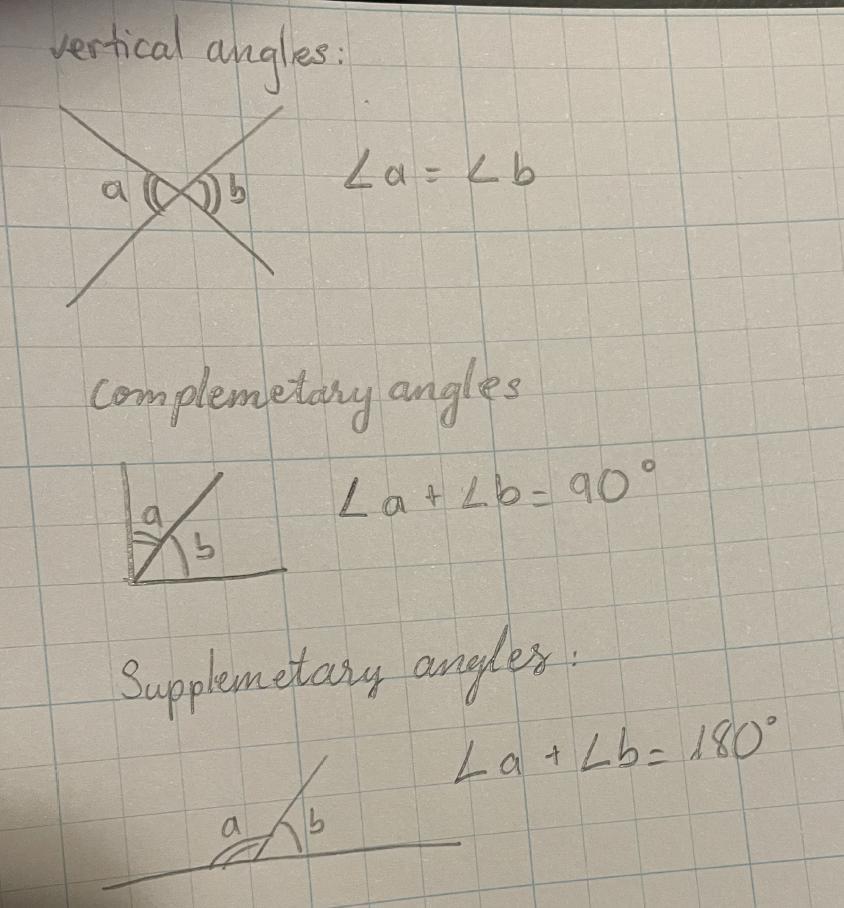 vertical angles:
a b ∠a = ∠b
Complemetary angles
a ∠a + ∠b = 90°
b
Supplemetary angles:
∠a + ∠b = 180°
a b